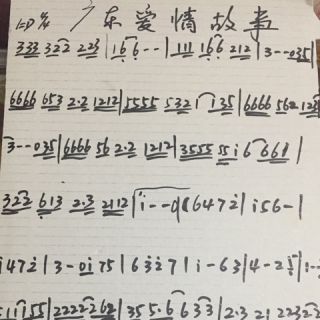 1=D 4/4 广东爱情故事
333 322 223 | 166 - - | 111 166 212 | 3 - - 035 |
6666 653 2·2 1212 | 5555 532 1 135 | 6666 562 123
3 - - 035 | 6666 56 2·2 1212 | 3555 55 i6 661 |
322 613 2·3 2112 | i - - 0 | 6472 | i56 - |
i472 | 3 - 0i75 | 63i27 | i - 63 | 4 - 2
2222262 | 355·6633 | 2·3 21 2232